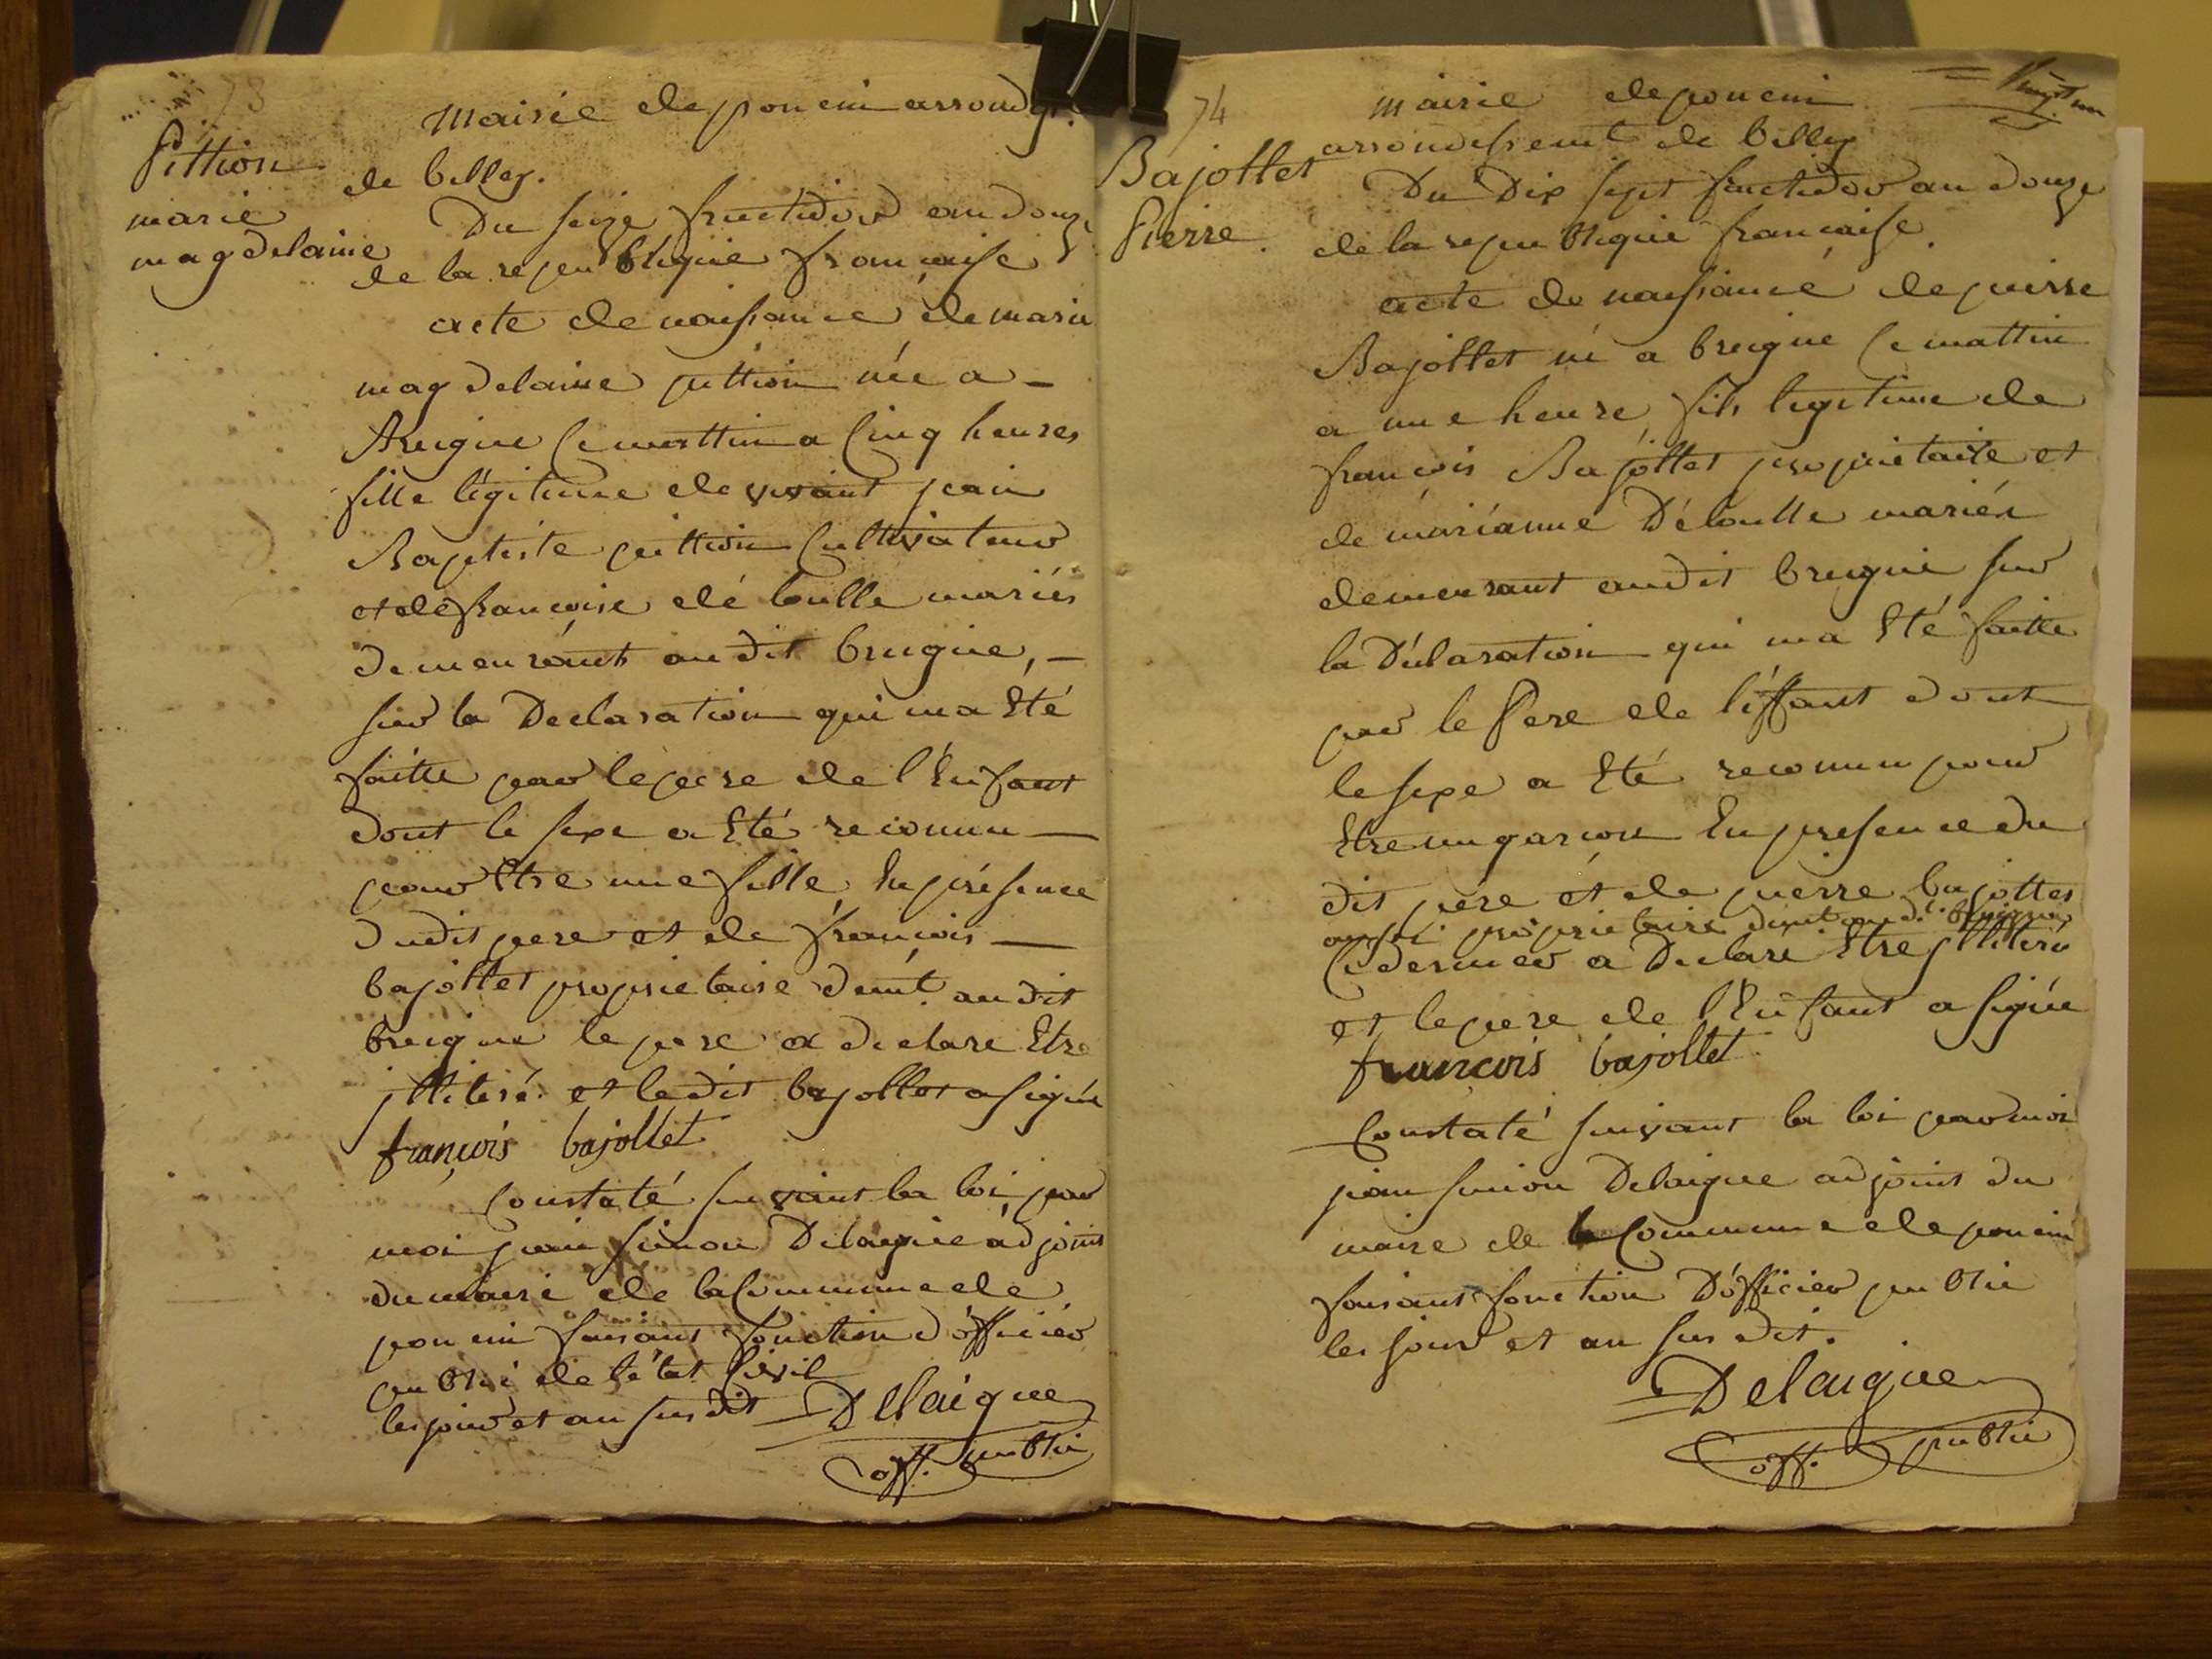 73
Pittion
marie
magdelaine
Mairie de poncin arrondt.
de belley.
Du seize fructidor an douze
de la republique francaise
acte de naissance de marie
magdelaine pittion née a -
Breigne ce mattin a cinq heures
fille légitime de vivant jean
Baptiste pittion cultivateur
et de francoise dé boulle mariés
demeurants au dit breigne, -
sur la Declaration qui ma Eté
faitte par le pere de l'Enfant
dont le sexe a Eté reconnu -
pour Etre une fille, En présence
dudit pere et de françois -
bajollet proprietaire demt. au dit
breigne le pere a declare Etre
jlliteré et le dit bajollet a signé
françois bajollet
Constaté suivant la loi par
moi jean simon Delaigue adjoint
du maire de la Commune de
poncin faisant fonction d'officier
public de l'état Civil
les jour et an susdit Delaigue
off. public
74
Bajollet
Pierre.
mairie de poncin
arrondissemt de belley
Du Dix sept fructidor an douze
de la republique francaise.
acte de naissance de pierre
Bajollet né a breigne ce mattin
a une heure, fils legitime de
françois Bajollet proprietaire et
de marianne Déboulle mariés
demeurant audit breigne sur
la Déclaration qui ma Eté faitte
par le Pere de l'éffant dont
le sexe a Eté reconnu pour
Etre un garcon En presence du
dit pere et de pierre bajottet
aussi proprietaire demt au dt. breigne
Ce dernier a Declare Etre jlliteré
et le pere de l'Enfant a signé
francois bajollet
Constaté suivant la loi par moi
jean simon Delaigue adjoint du
maire de la Commune de poncin
faisant fonction D'officier public
les jour et an sus dit.
Delaigue
off. public